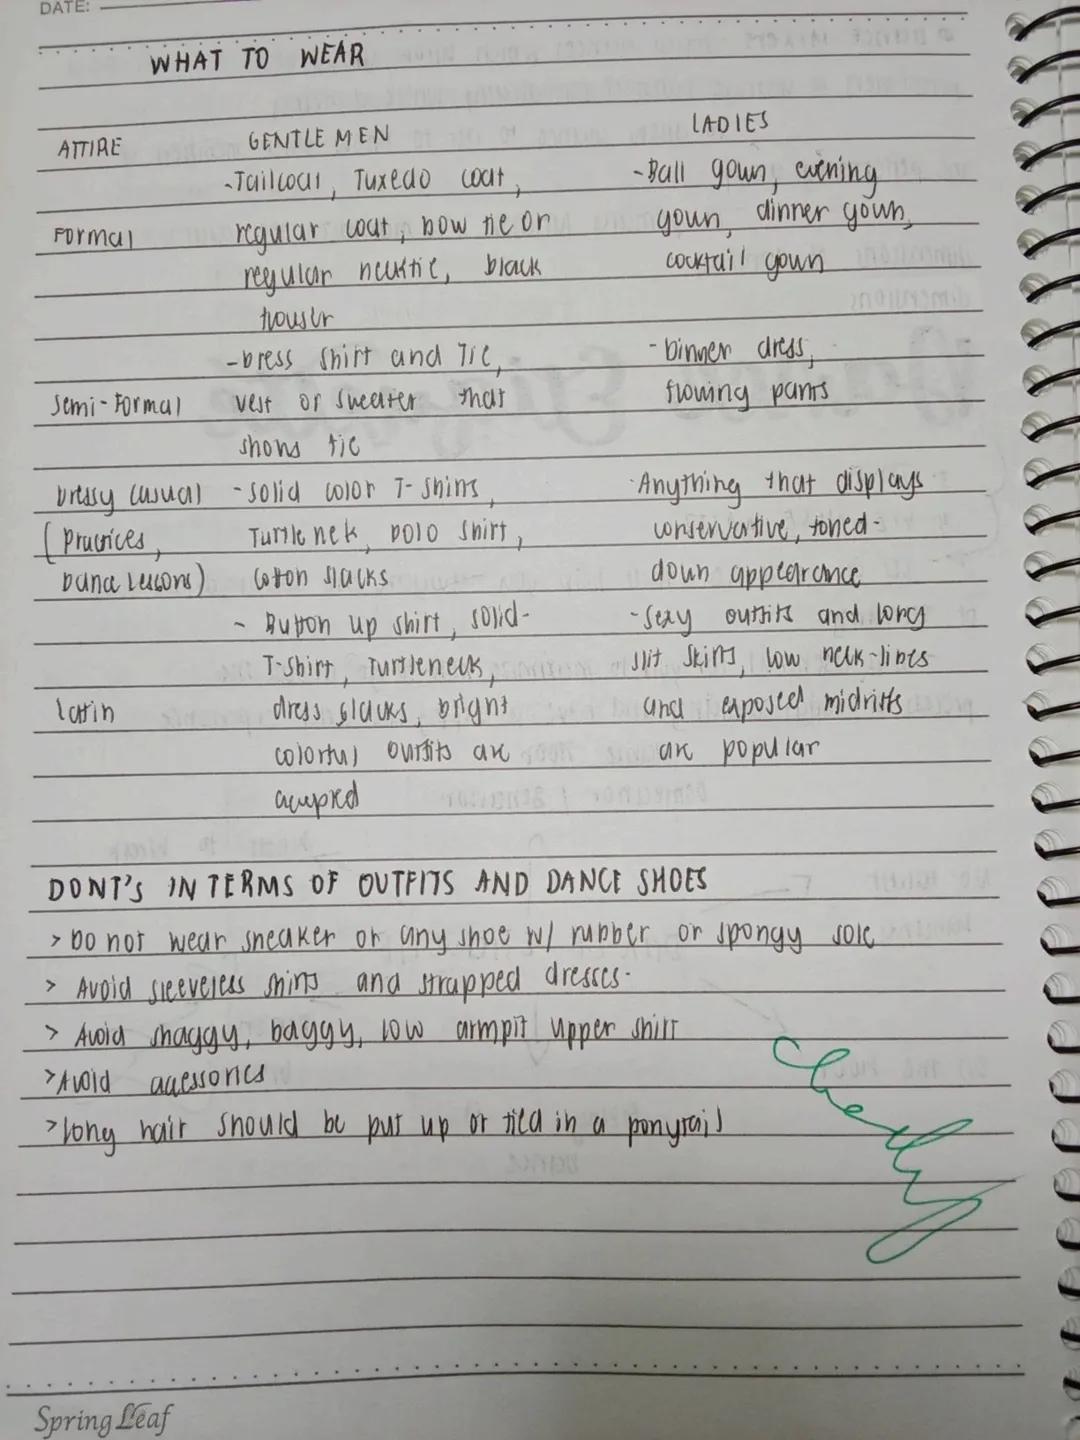 DATE:
WHAT TO WEAR
ATTIRE GENTLEMEN LADIES
-Tailcoat, Tuxedo coat, -Ball gown, evening
Formal regular coat, bow tie or gown, dinner gown,
regular necktie, black cocktail gown
trouser
-Dress shirt and Tie, -Dinner dress,
Semi-Formal vest or sweater that flowing pants
shows tie
Dressy casual -solid color T-shirts, -Anything that displays
(Practices, Turtlenek, polo shirt, conservative, toned-
Dance Lessons) cotton slacks down appearance
- Button up shirt, solid- -Sexy outfits and long
T-shirt, Turtleneck, slit skirts, low neck-lines
Latin dress slacks, bright and exposed midrifts
colorful outfits are are popular
accepted
DONT'S IN TERMS OF OUTFITS AND DANCE SHOES
> Do not wear sneaker or any shoe w/ rubber or spongy sole
> Avoid sleeveless shirts and strapped dresses.
> Avoid shaggy, baggy, low armpit upper shirt
> Avoid accessories
> Long hair should be put up or tied in a ponytail
Spring Leaf